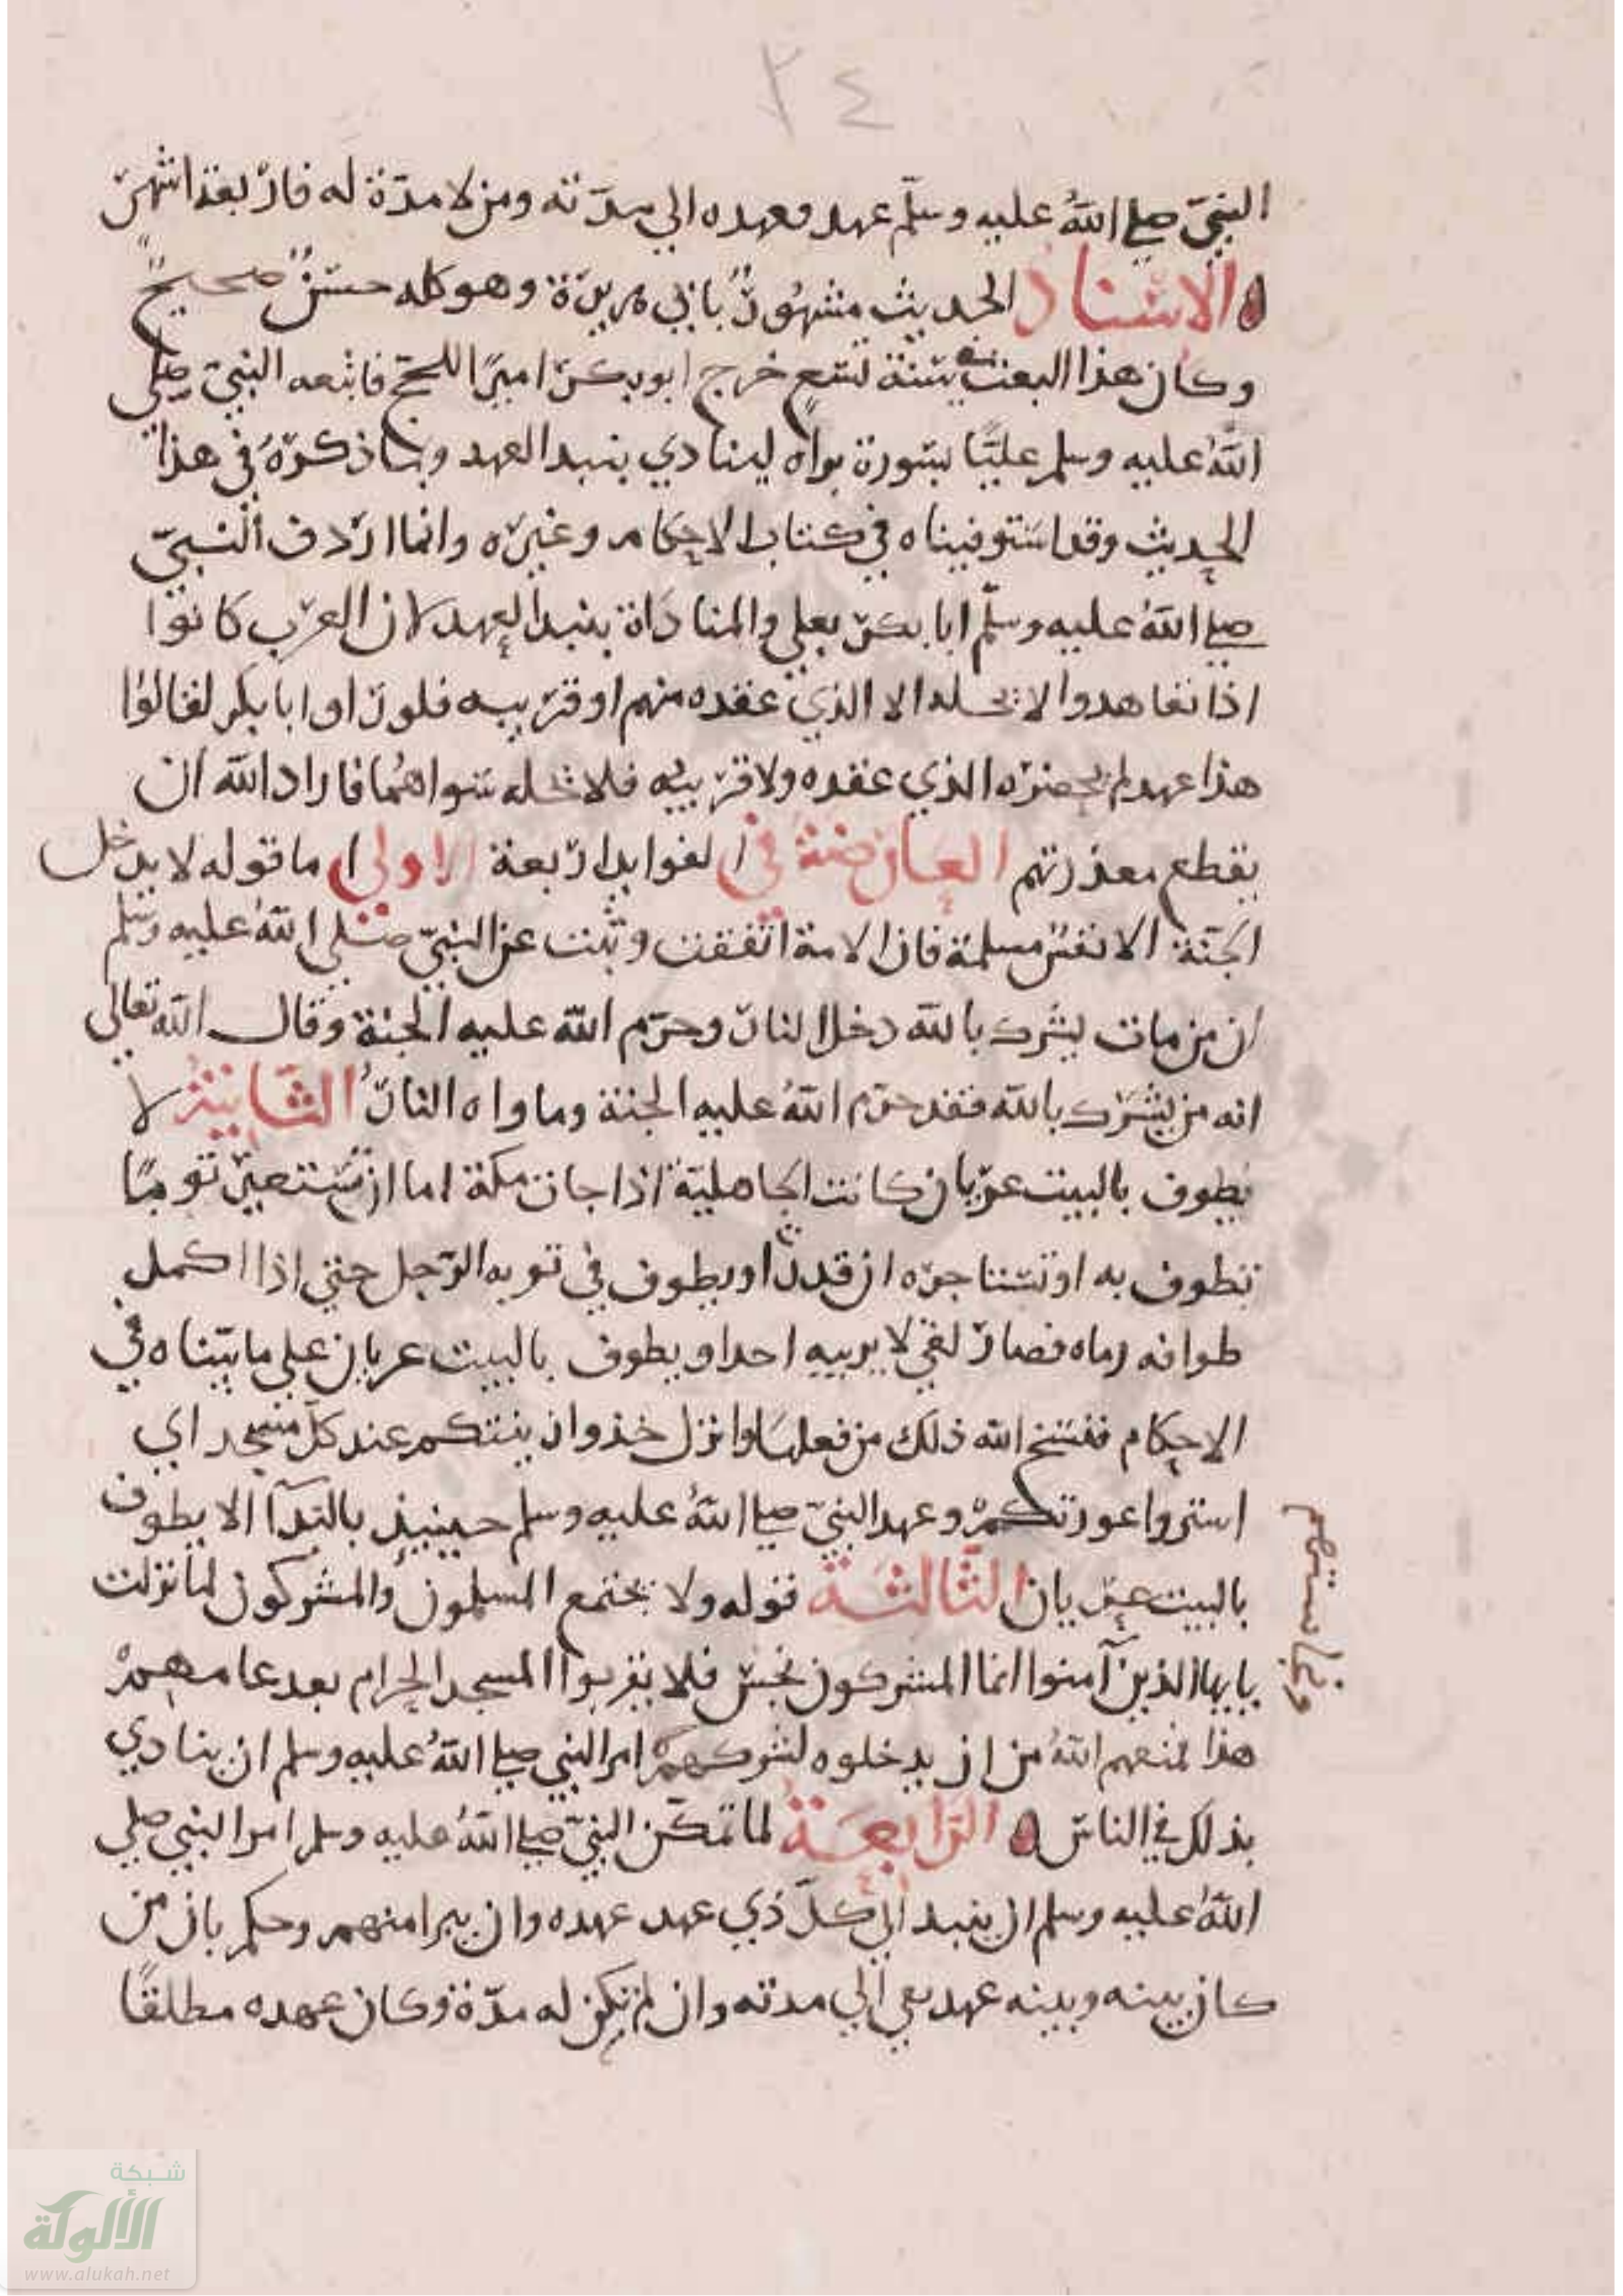 ٢٤
النبي صلى الله عليه وسلم عهد فعهده الي مدته ومن لا مدة له فاربعة اشهر
الاسناد الحديث مشهور بابي هريرة وهو كله حسن صحيح
وكان هذا البعث سنة تسع خرج ابو بكر اميرا للحج فاتبعه النبي صلى
الله عليه وسلم عليا بسورة براه لينادي بنبد العهد وبما ذكره في هذا
الحديث وقد استوفيناه في كتاب الاحكام وغيره وانما اردف النبي
صلى الله عليه وسلم ابا بكر بعلي والمناداة بنبد العهد لان العرب كانوا
اذا تعاهدوا لا يحله الا الذي عقده منهم او قريبه فلو نادا ابا بكر لقالوا
هذا عهد لم يحضره الذي عقده ولا قريبه فلا يحله سواهما فاراد الله ان
يقطع معذرتهم العارضة في الفوايد اربعة الاولى اما قوله لا يدخل
الجنة الا نفس مسلمة فان الامة اتفقت وثبت عن النبي صلى الله عليه وسلم
ان من مات يشرك بالله دخل النار وحرم الله عليه الجنة وقال الله تعالى
انه من يشرك بالله فقد حرم الله عليه الجنة وماواه النار الثانية لا
يطوف بالبيت عريان كانت الجاهلية اذا جات مكة اما ان تستعير ثوبا
تطوف به او تستاجره ان قدرت او يطوف في ثوبه الرجل حتي اذا اكمل
طوافه رماه فصار لقي لا يريبه احد او يطوف بالبيت عريان علي ما بيناه في
الاحكام فنسخ الله ذلك من فعلها وانزل خذوا زينتكم عند كل مسجد اي
استروا عورتكم وعهد النبي صلى الله عليه وسلم حينيذ بالندآ الا يطوف
بالبيت عريان الثالثة قوله ولا يجتمع المسلمون والمشركون لما نزلت
يايها الذين آمنوا انما المشركون نجس فلا يقربوا المسجد الحرام بعد عامهم
هذا فمنعهم الله من ان يدخلوه لشركهم امر النبي صلى الله عليه وسلم ان ينادي
بذلك في الناس الرابعة لما تمكن النبي صلى الله عليه وسلم امر النبي صلي
الله عليه وسلم ان ينبد الي كل ذي عهد عهده وان يبرا منهم وحكم بان من
كان بينه وبينه عهد بقي الي مدته وان لم تكن له مدة وكان عهده مطلقا
ونجاستهم
شبكة
الألوكة
www.alukah.net